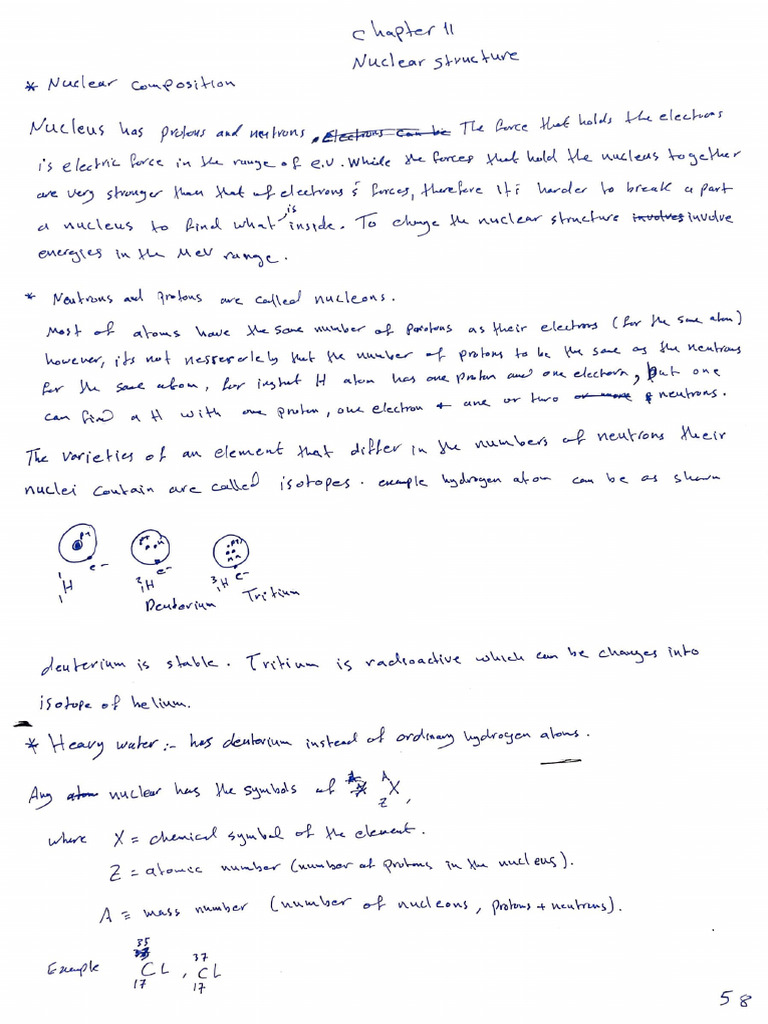 Chapter 11
Nuclear structure
* Nuclear composition
Nucleus has protons and neutrons. Electrons can be The force that holds the electrons
is electric force in the range of e.v. While the forces that hold the nucleus together
are very stronger than that of electrons's forces, therefore it's harder to break a part
a nucleus to find what is inside. To change the nuclear structure involves involve
energies in the MeV range.
* Neutrons and protons are called nucleons.
Most of atoms have the same number of protons as their electrons (for the same atom)
however, it's not nessesereley that the number of protons to be the same as the neutrons
for the same atom, for instant H atom has one proton and one electorn, but one
can find a H with one proton, one electron + one or two or more neutrons.
The varieties of an element that differ in the numbers of neutrons their
nuclei contain are called isotopes. example hydrogen atom can be as shown
p+ p+ n p+ n n
e- e- e-
1 1 H 2 1 H 3 1 H
Deuterium Tritium
deuterium is stable. Tritium is radioactive which can be changes into
isotope of helium.
* Heavy water:- has deuterium instead of ordinary hydrogen atoms.
Any atom nuclear has the symbols of A Z X,
where X = chemical symbol of the element.
Z = atomic number (number of protons in the nucleus).
A = mass number (number of nucleons, protons + neutrons).
Example 35 17 CL, 37 17 CL
58